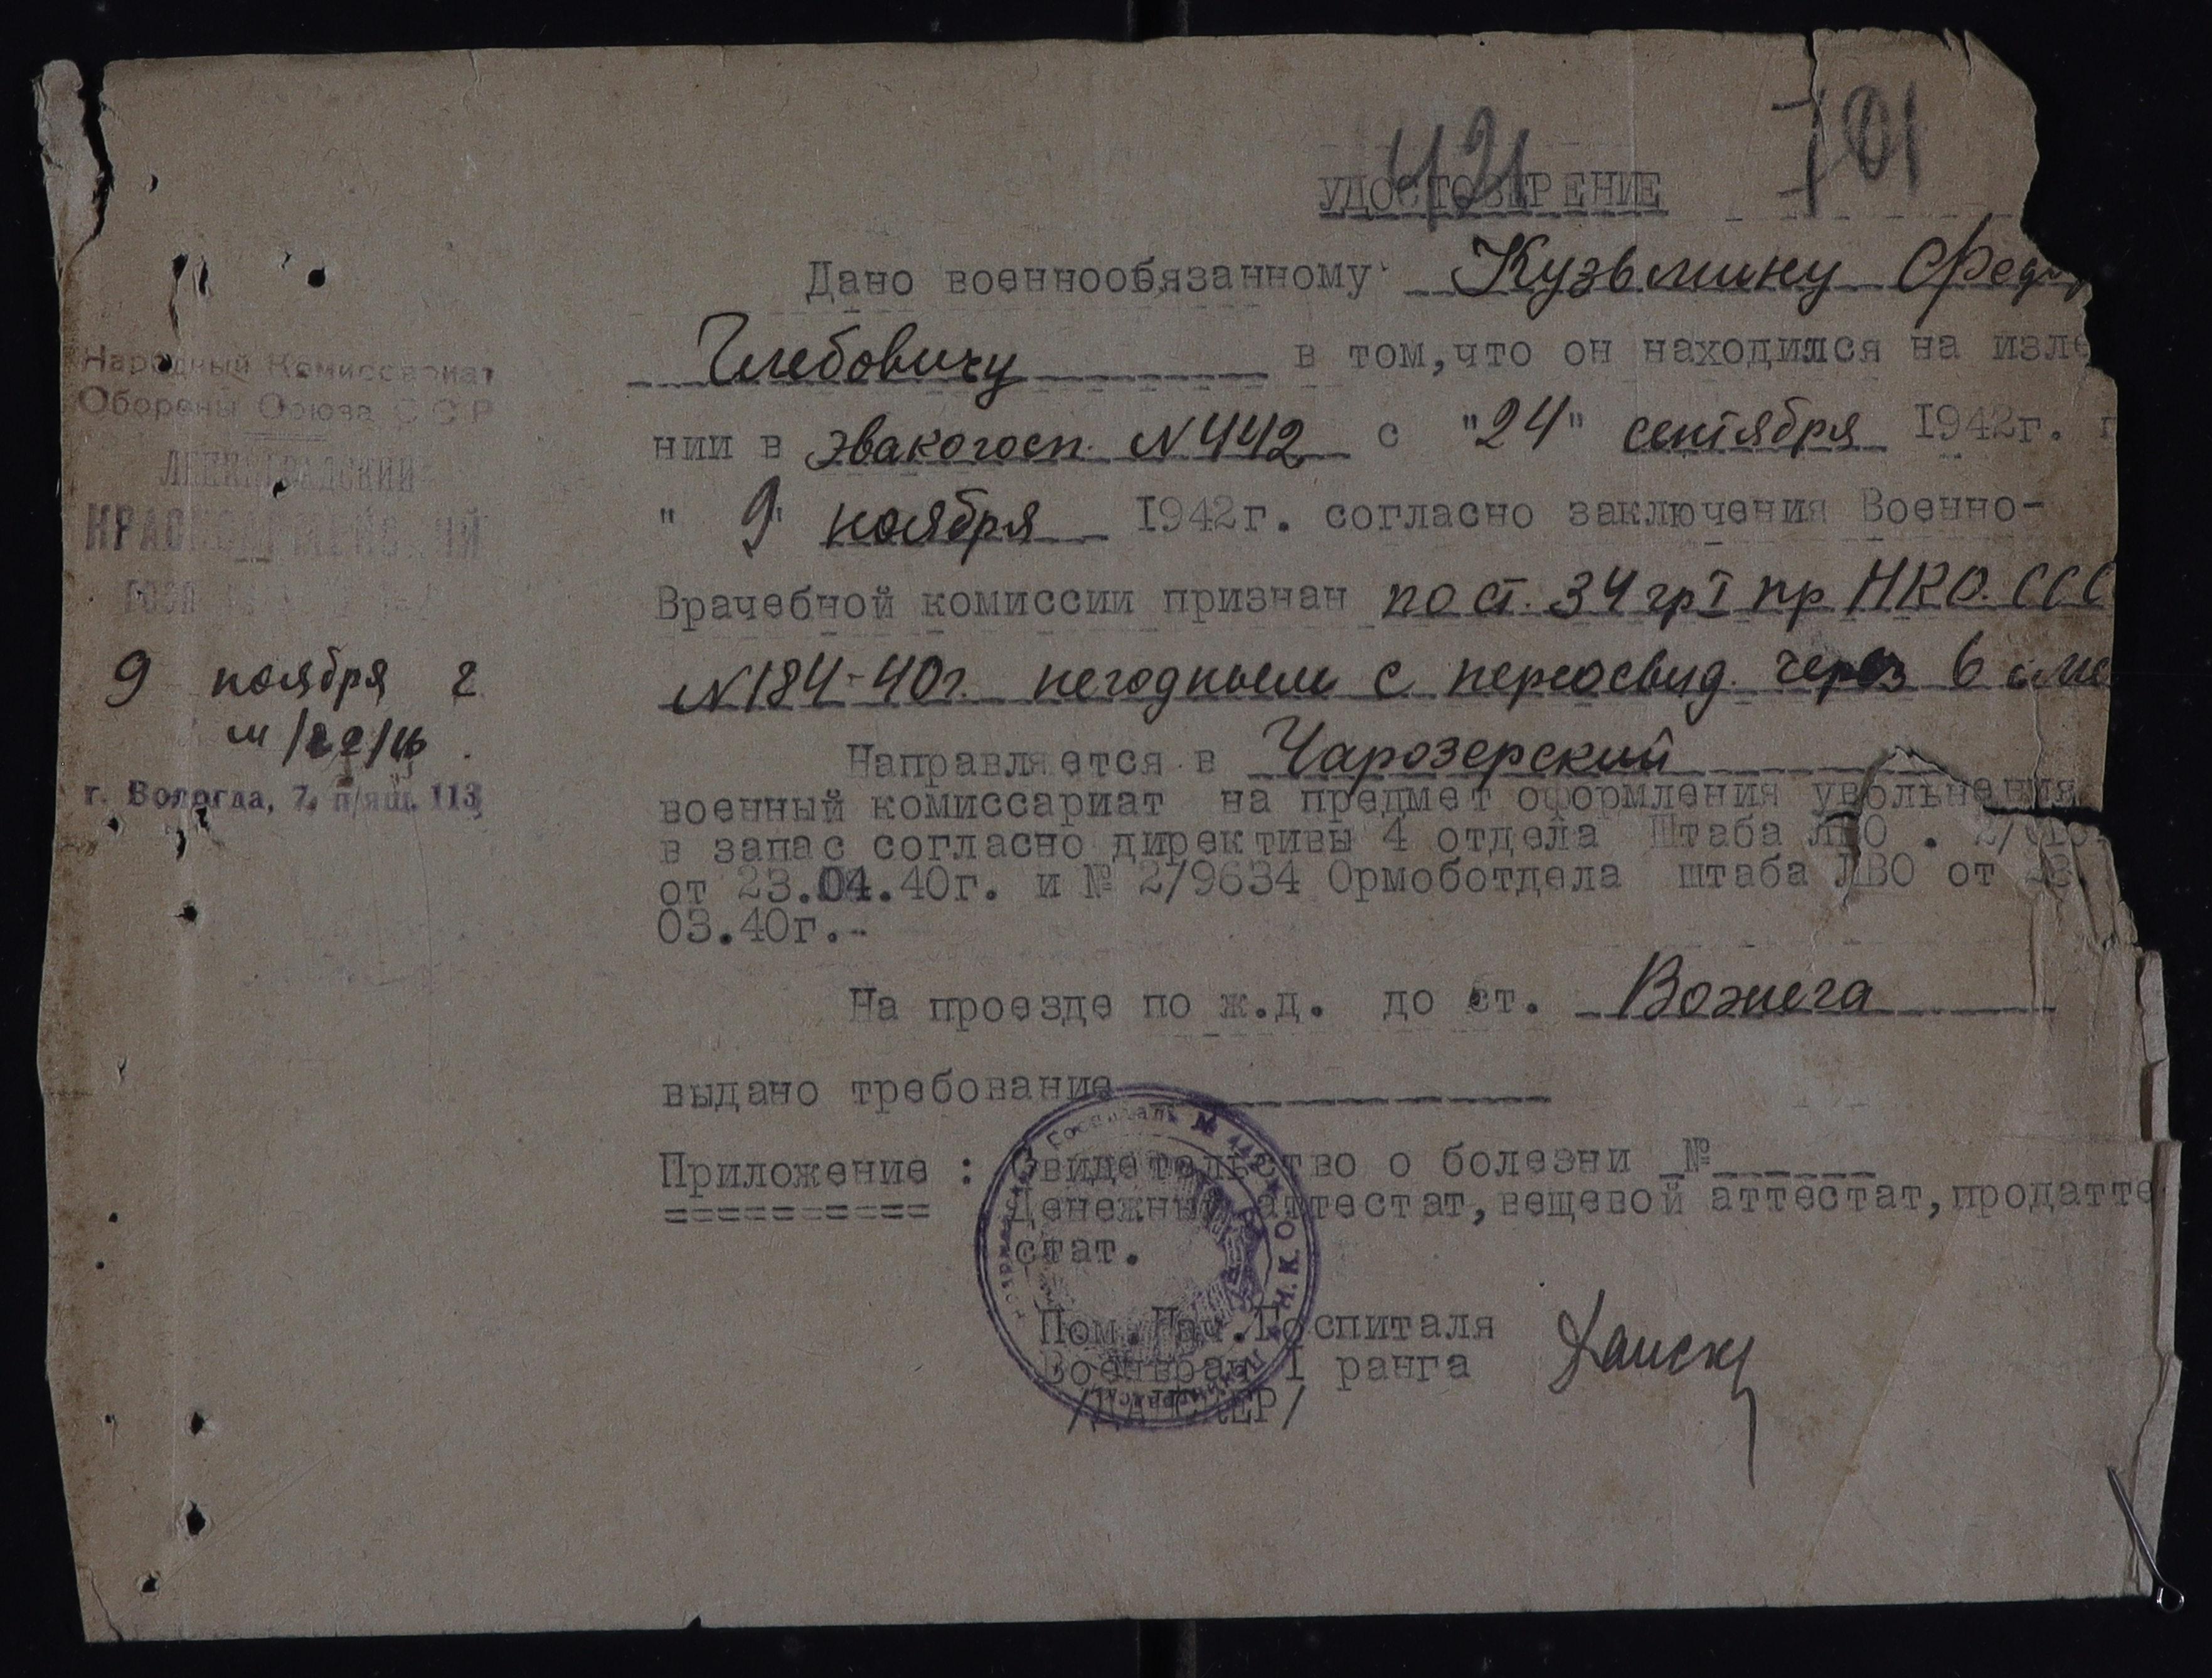 421
701
УДОСТОВЕРЕНИЕ
Дано военнообязанному Кузьмину Фед
Глебовичу в том,что он находился на изле
нии в эвакогосп. N 442 с "24" сентября 1942г. п
" 9" ноября 1942г. согласно заключения Военно-
Врачебной комиссии признан по ст. 34 гр I пр НКО. ССС
N 184-40г. негодным с переосвид. через 6 ме
Направляется в Чарозерский
военный комиссариат на предмет оформления увольнения
в запас согласно директивы 4 отдела Штаба ЛВО .
от 23.04.40г. и № 2/9634 Ормоботдела штаба ЛВО от 23.
03.40г.-
На проезде по ж.д. до ст. Вожега
выдано требование
Приложение : Свидетельство о болезни №
==========
Денежный аттестат,вещевой аттестат,продатте
стат.
Пом.Нач.Госпиталя
Военврач I ранга
/ДАНСКЕР/
Народный Комиссариат
Обороны Союза ССР
ЛЕНИНГРАДСКИЙ
КРАСНОАРМЕЙСКИЙ
9 ноября г
г. Вологда, 7. п/ящ. 113
Госпиталь № 442 Н.К.О.